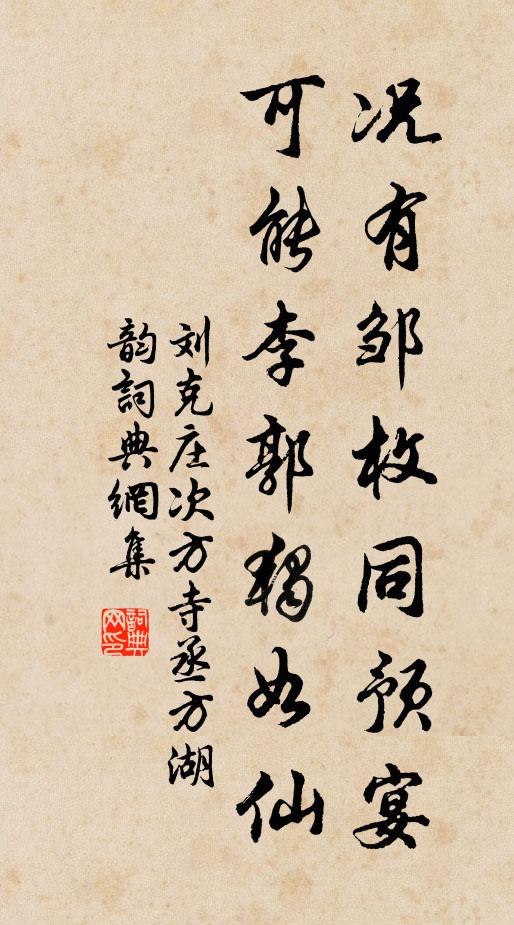 况有邹枚同预宴
可能李郭独如仙
刘克庄次方寺丞方湖
韵詞典網集
詞典网印